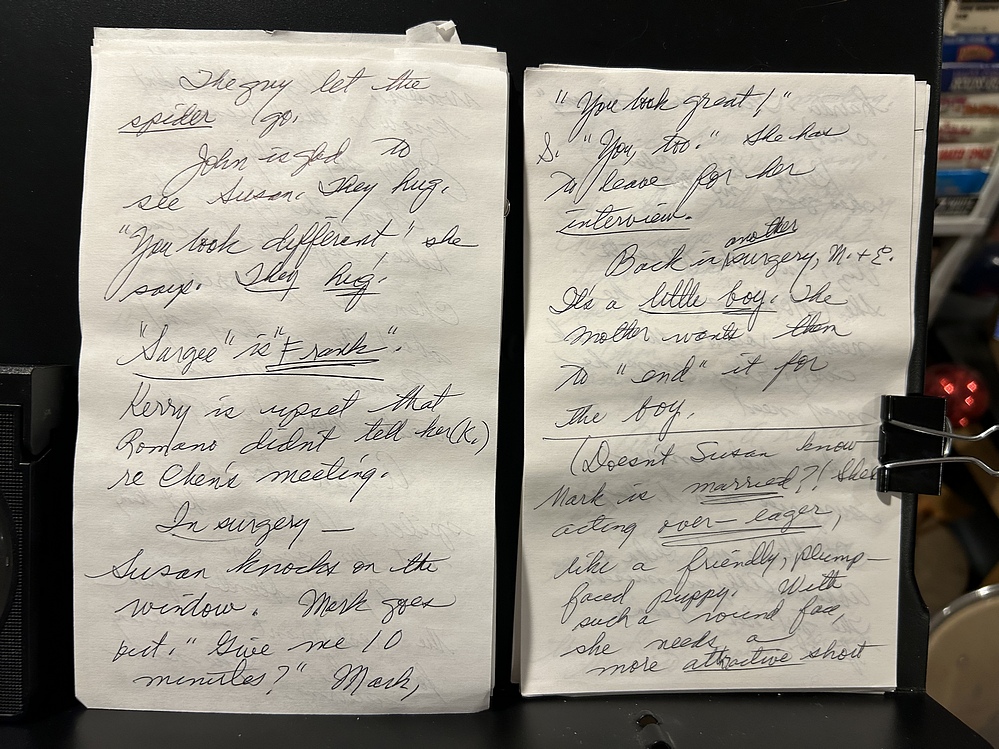 The guy let the
spider go.
John is glad to
see Susan. They hug.
"You look different" she
says. They hug.
"Sargee" is "Frank".
Kerry is upset that
Romano didn't tell her (K.)
re Chen's meeting.
In surgery —
Susan knocks on the
window. Mark goes
out. "Give me 10
minutes?" Mark,
"You look great!"
S. "You, too." She has
to leave for her
interview.
another
Back in surgery, M. + E.
It's a little boy. The
mother wants them
to "end" it for
the boy.
(Doesn't Susan know
Mark is married?! She's
acting over-eager,
like a friendly, plump-
faced puppy. With
such a round face,
she needs a
more attractive short